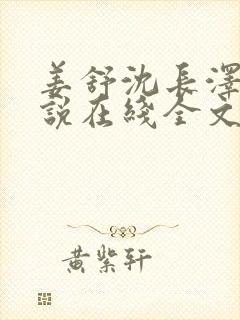 姜舒沈長澤
說在綫全文
黄紫轩